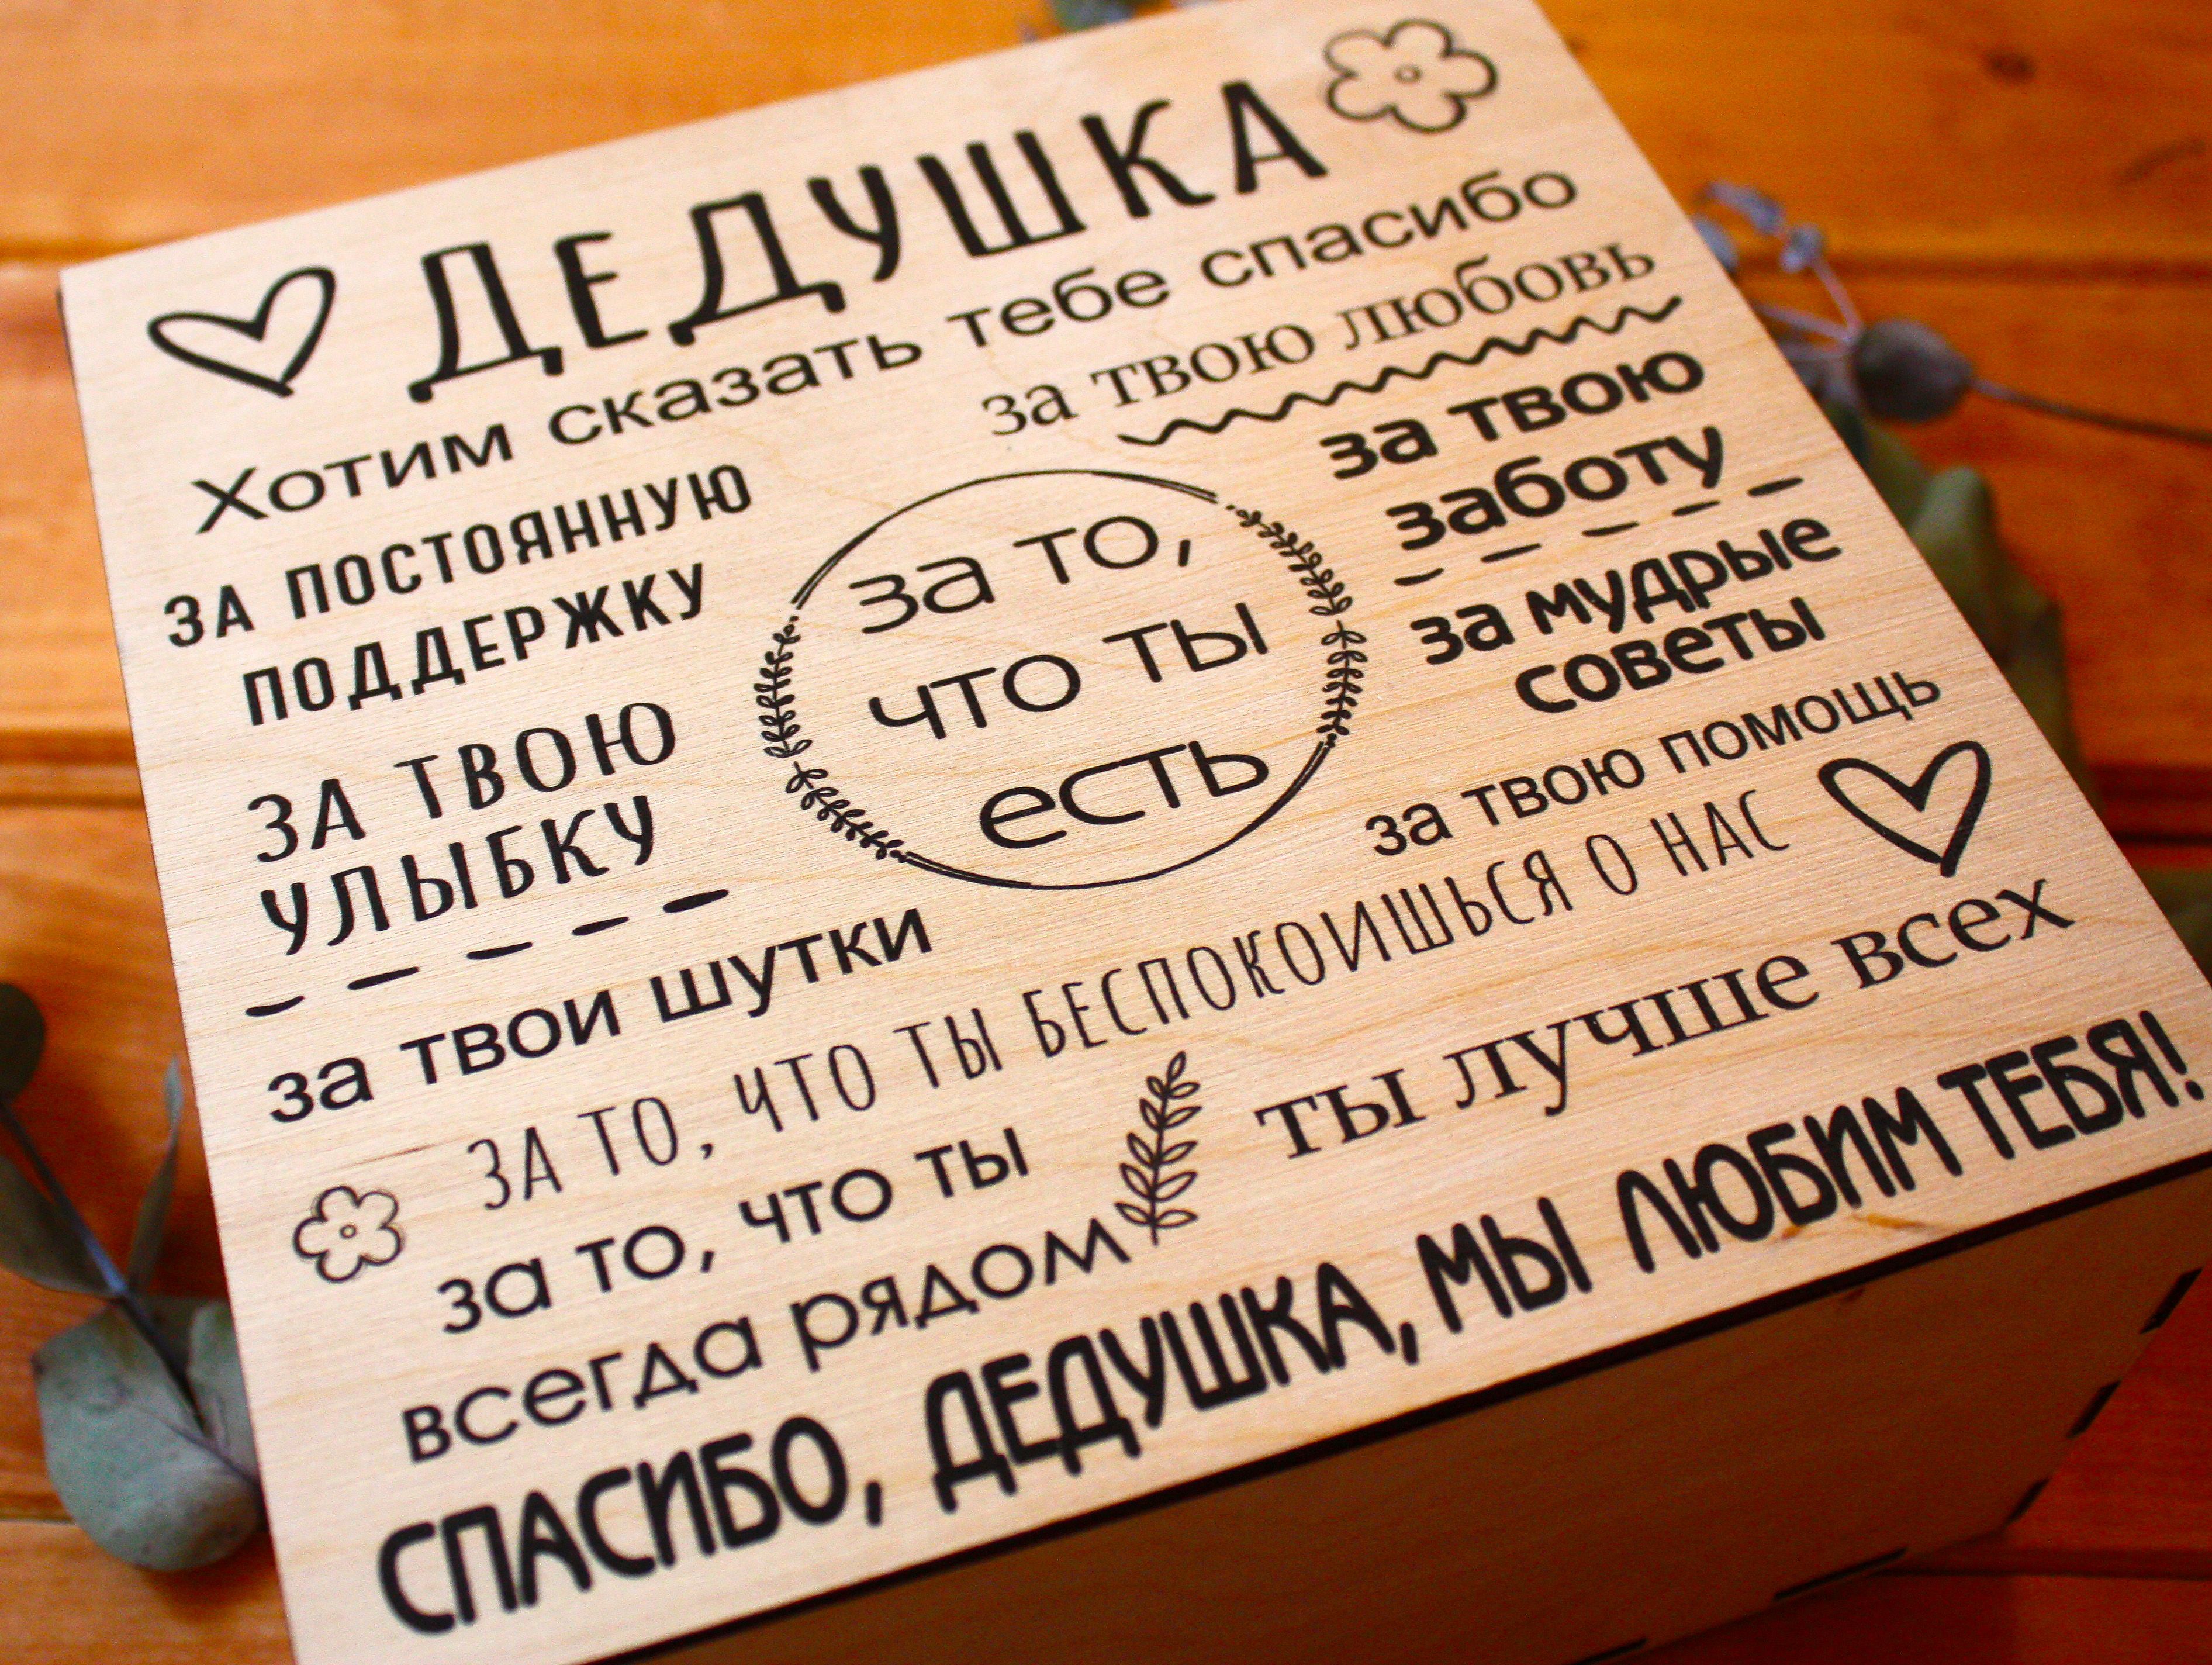 ДЕДУШКА
Хотим сказать тебе спасибо
за твою любовь
ЗА ПОСТОЯННУЮ
ПОДДЕРЖКУ
ЗА ТВОЮ
УЛЫБКУ
за твои шутки
за то,
что ты
есть
за твою
заботу
за мудрые
советы
за твою помощь
ЗА ТО, ЧТО ТЫ БЕСПОКОИШЬСЯ О НАС
за то, что ты
всегда рядом
ты лучше всех
СПАСИБО, ДЕДУШКА, МЫ ЛЮБИМ ТЕБЯ!